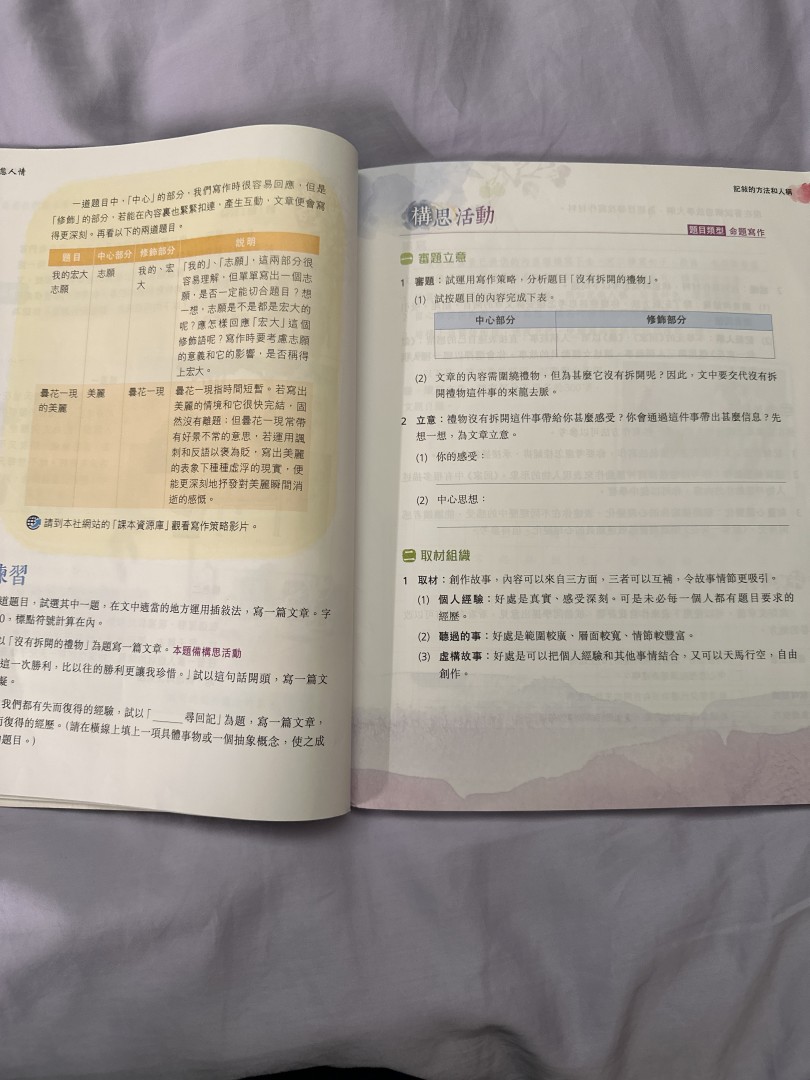 態人情
一道題目中，「中心」的部分，我們寫作時很容易回應，但是
「修飾」的部分，若能在內容裏也緊緊扣連，產生互動，文章便會寫
得更深刻。再看以下的兩道題目。
題目 中心部分 修飾部分 說明
我的宏大志願 志願 我的、宏大 「我的」、「志願」，這兩部分很
容易理解，但單單寫出一個志
願，是否一定能切合題目？想
一想，志願是不是都是宏大的
呢？應怎樣回應「宏大」這個
修飾語呢？寫作時要考慮志願
的意義和它的影響，是否稱得
上宏大。
曇花一現的美麗 美麗 曇花一現 曇花一現指時間短暫。若寫出
美麗的情境和它很快完結，固
然沒有離題；但曇花一現常帶
有好景不常的意思，若運用諷
刺和反語以褒為貶，寫出美麗
的表象下種種虛浮的現實，便
能更深刻地抒發對美麗瞬間消
逝的感慨。
請到本社網站的「課本資源庫」觀看寫作策略影片。
練習
道題目，試選其中一題，在文中適當的地方運用插敍法，寫一篇文章。字
0，標點符號計算在內。
以「沒有拆開的禮物」為題寫一篇文章。本題備構思活動
這一次勝利，比以往的勝利更讓我珍惜。」試以這句話開頭，寫一篇文
我們都有失而復得的經驗，試以「______尋回記」為題，寫一篇文章，
而復得的經歷。（請在橫線上填上一項具體事物或一個抽象概念，使之成
題目。）
記敍的方法和人稱
構思活動
題目類型 命題寫作
一 審題立意
1 審題：試運用寫作策略，分析題目「沒有拆開的禮物」。
(1) 試按題目的內容完成下表。
中心部分 修飾部分
(2) 文章的內容需圍繞禮物，但為甚麼它沒有拆開呢？因此，文中要交代沒有拆
開禮物這件事的來龍去脈。
2 立意：禮物沒有拆開這件事帶給你甚麼感受？你會通過這件事帶出甚麼信息？先
想一想，為文章立意。
(1) 你的感受：
(2) 中心思想：
二 取材組織
1 取材：創作故事，內容可以來自三方面，三者可以互補，令故事情節更吸引。
(1) 個人經驗：好處是真實、感受深刻。可是未必每一個人都有題目要求的
經歷。
(2) 聽過的事：好處是範圍較廣、層面較寬、情節較豐富。
(3) 虛構故事：好處是可以把個人經驗和其他事情結合，又可以天馬行空，自由
創作。